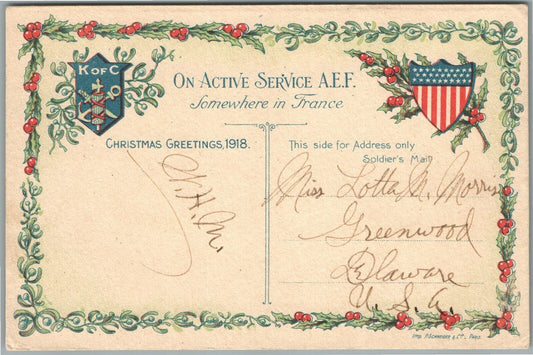 K OF C
ON ACTIVE SERVICE A.E.F.
Somewhere in France
CHRISTMAS GREETINGS, 1918.
This side for Address only
Soldier's Mail
N. H. M.
Miss Lotta M. Morris
Greenwood
Delaware
U. S. A.
IMP. P. SCHNEIDER & Cie, PARIS